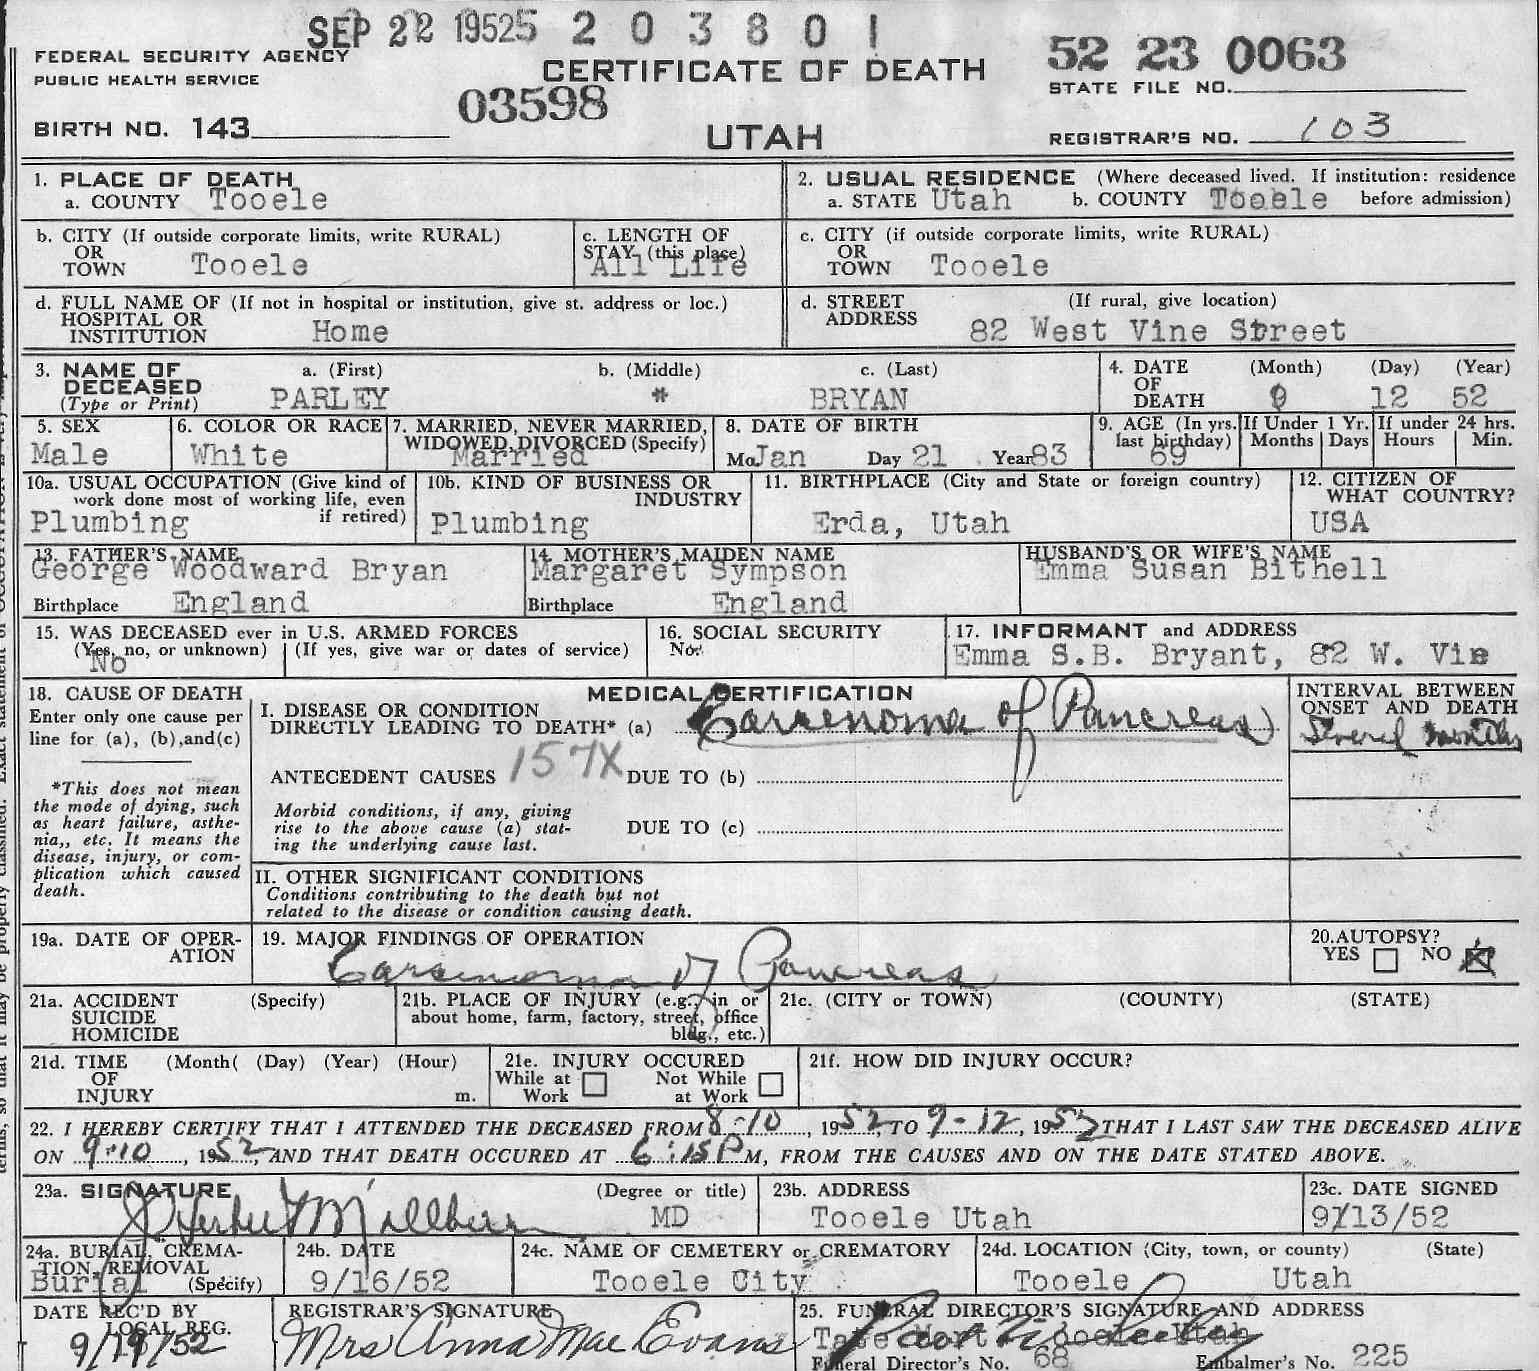 SEP 22 19525 2 0 3 8 0 1
FEDERAL SECURITY AGENCY
PUBLIC HEALTH SERVICE
CERTIFICATE OF DEATH
52 23 0063
STATE FILE NO.
03598
BIRTH NO. 143
UTAH
REGISTRAR'S NO. 103
1. PLACE OF DEATH
a. COUNTY Tooele
2. USUAL RESIDENCE (Where deceased lived. If institution: residence
a. STATE Utah b. COUNTY Tooele before admission)
b. CITY (If outside corporate limits, write RURAL)
OR
TOWN Tooele
c. LENGTH OF
STAY (this place)
All Life
c. CITY (if outside corporate limits, write RURAL)
OR
TOWN Tooele
d. FULL NAME OF (If not in hospital or institution, give st. address or loc.)
HOSPITAL OR
INSTITUTION Home
d. STREET (If rural, give location)
ADDRESS 82 West Vine Street
3. NAME OF a. (First) b. (Middle) c. (Last)
DECEASED
(Type or Print) PARLEY * BRYAN
4. DATE (Month) (Day) (Year)
OF
DEATH 9 12 52
5. SEX
Male
6. COLOR OR RACE
White
7. MARRIED, NEVER MARRIED,
WIDOWED, DIVORCED (Specify)
Married
8. DATE OF BIRTH
Mo. Jan Day 21 Year 83
9. AGE (In yrs.
last birthday)
69
If Under 1 Yr.
Months Days
If under 24 hrs.
Hours Min.
10a. USUAL OCCUPATION (Give kind of
work done most of working life, even
if retired)
Plumbing
10b. KIND OF BUSINESS OR
INDUSTRY
Plumbing
11. BIRTHPLACE (City and State or foreign country)
Erda, Utah
12. CITIZEN OF
WHAT COUNTRY?
USA
13. FATHER'S NAME
George Woodward Bryan
Birthplace England
14. MOTHER'S MAIDEN NAME
Margaret Sympson
Birthplace England
HUSBAND'S OR WIFE'S NAME
Emma Susan Bithell
15. WAS DECEASED ever in U.S. ARMED FORCES
(Yes, no, or unknown) (If yes, give war or dates of service)
No
16. SOCIAL SECURITY
No.
17. INFORMANT and ADDRESS
Emma S.B. Bryant, 82 W. Vin
18. CAUSE OF DEATH
Enter only one cause per
line for (a), (b),and(c)
*This does not mean
the mode of dying, such
as heart failure, asthe-
nia,, etc. It means the
disease, injury, or com-
plication which caused
death.
MEDICAL CERTIFICATION
I. DISEASE OR CONDITION
DIRECTLY LEADING TO DEATH* (a) Carcenoma of Pancreas
ANTECEDENT CAUSES 157X DUE TO (b)
Morbid conditions, if any, giving
rise to the above cause (a) stat-
ing the underlying cause last.
DUE TO (c)
II. OTHER SIGNIFICANT CONDITIONS
Conditions contributing to the death but not
related to the disease or condition causing death.
INTERVAL BETWEEN
ONSET AND DEATH
Several months
19a. DATE OF OPER-
ATION
19. MAJOR FINDINGS OF OPERATION
Carcinoma of Pancreas
20.AUTOPSY?
YES NO
21a. ACCIDENT (Specify)
SUICIDE
HOMICIDE
21b. PLACE OF INJURY (e.g., in or
about home, farm, factory, street, office
bldg., etc.)
21c. (CITY or TOWN) (COUNTY) (STATE)
21d. TIME (Month( (Day) (Year) (Hour)
OF
INJURY m.
21e. INJURY OCCURED
While at Not While
Work at Work
21f. HOW DID INJURY OCCUR?
22. I HEREBY CERTIFY THAT I ATTENDED THE DECEASED FROM 8-10, 1952, TO 9-12, 1952 THAT I LAST SAW THE DECEASED ALIVE
ON 9-10, 1952, AND THAT DEATH OCCURED AT 6:15P M, FROM THE CAUSES AND ON THE DATE STATED ABOVE.
23a. SIGNATURE (Degree or title)
J Herbert Millburn MD
23b. ADDRESS
Tooele Utah
23c. DATE SIGNED
9/13/52
24a. BURIAL, CREMA-
TION, REMOVAL
Burial (Specify)
24b. DATE
9/16/52
24c. NAME OF CEMETERY or CREMATORY
Tooele City
24d. LOCATION (City, town, or county) (State)
Tooele Utah
DATE REC'D BY
LOCAL REG.
9/19/52
REGISTRAR'S SIGNATURE
Mrs Anna Mae Evans
25. FUNERAL DIRECTOR'S SIGNATURE AND ADDRESS
Tate Mort Tooele Utah
Funeral Director's No. 68 Embalmer's No. 225